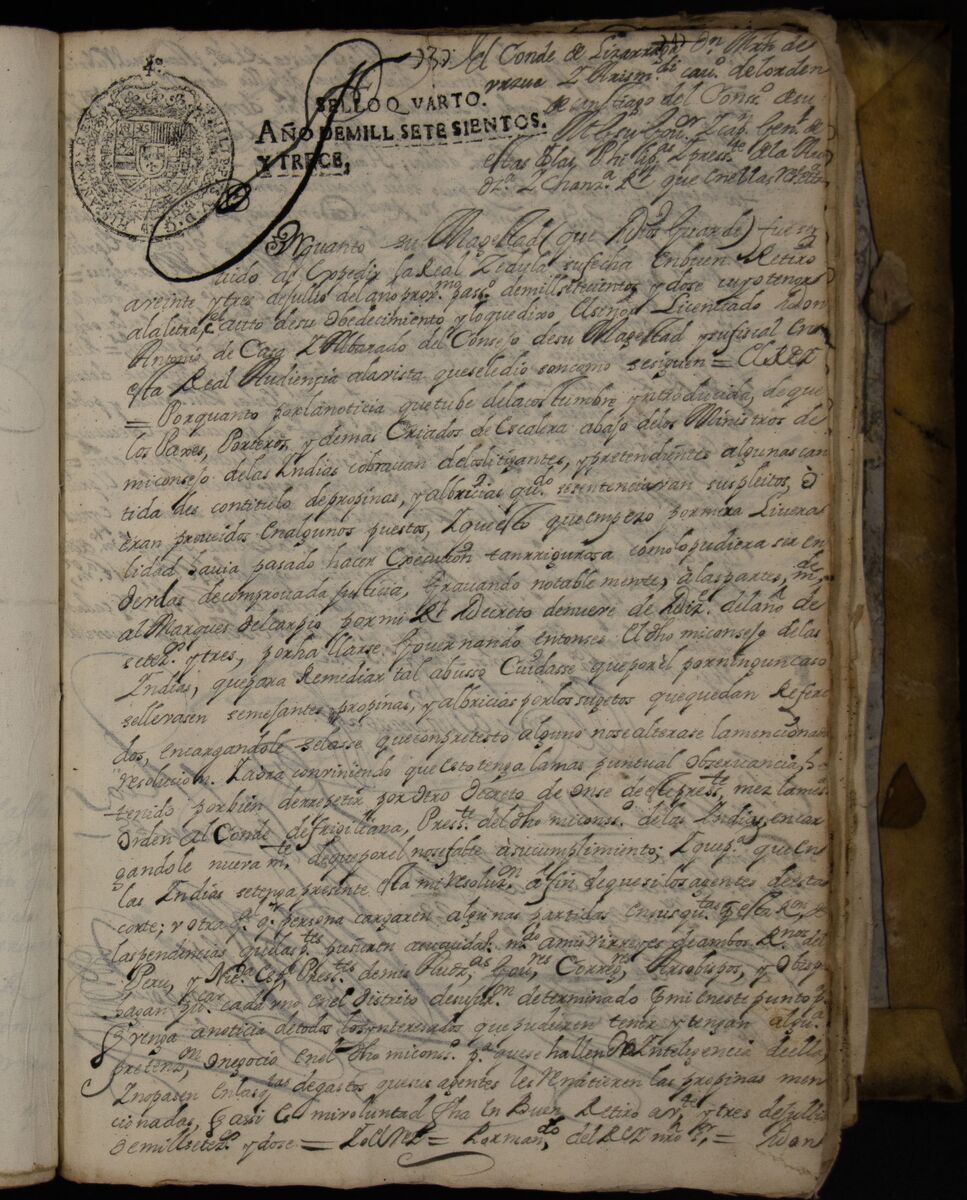 4º
SELLO QVARTO.
AÑO DEMILL SETESIENTOS.
Y TRECE,
El Conde de Lizarraga Dn. Mrn de
ursua Y Arismdi cauo. del orden
de santiago del Conso. de su
Magd su Gouor. Y Capn. Genl. de
estas Yslas Phelipas. Y presste. de la Au
da. Y Chanza. Rl. que en ellas reside
Porquanto su Magestad (que Dios Guarde) fue ser
uido de expedir la Real Zedula su fecha en buen Retiro
a veinte y tres de Jullio del año proxmo. passo. de mill setecientos y dose cuyo tenor
a la letra, el auto de su obedecimiento y lo que dixo el señor Licenciado
Antonio de Casa Y Albarado del Consejo de su Magestad y su fiscal en
esta Real Audiencia a la vista que se le dio son como se siguen = El REY
= Porquanto por la noticia que tube de la costumbre yntroducida, de que
los Pajes, Porteros, y demas Criados de Escalera abajo de los Ministros de
mi consejo de las Yndias cobrauan de los litigantes, y pretendientes algunas can
tidades con titulo de propinas, y albricias qdo. se sentenciavan sus pleitos, ò
eran proueidos en algunos puestos, Y que esto que empezo por mera Livera
lidad hauia pasado hacer Execucion tan rrigurosa como lo pudiera ser en
deudas de comprouada justicia, Grauando notablemente, à las partes, mde
al Marques del carpio por mi Rl Decreto de nueve de Dizre. del año de
setezs. y tres, por hallarse Gouernando entonses El dho mi consejo de las
Yndias, que para Remediar tal abusso Cuidasse que por èl por ningun caso
se lleuasen semejantes propinas, y albricias por los sugetos que quedan Refere
dos, encargandole zelasse que con pretesto alguno no se alterase la menciona
resolucion. Y aora conviniendo que esto tenga la mas puntual obzervancia, he
tenido por bien de rrepetir por otro decreto de onse de este presste. mez la mesma
orden al Conde de frigiliana, Presste. del dho mi conso. de las Yndias, encar
gandole nuevamte. de que por el no se falte à su cumplimiento; Y que pa. que en
las Yndias se tenga presente esta mi resoluzon. a fin de que si los agentes de esta
corte; y otra qualqra. persona cargaren algunas partidas en sus qutas.
las pendencias que las ptes pusieren a su cuidado. mdo. a mis virreyes de ambos Reynos del
Peru, y Na. Espa. Presstes. de mis Audas., Goures, Corregres, Arsobispos, y Obisps.
hagan pucar. cada uno en el distrito de su juron. determinado
venga a noticia de todos los ynteresados que pudieren tener y tengan algua.
pretenzon, ò negocio en el dho mi conso. pa. que se hallen en Ynteligencia de ella
Y no pasen en las qtas. de gastos que sus agentes les remitieren las propinas men
cionadas, Y assi es mi voluntad fha en Buen Retiro a vte. y tres de Jullio
de mill setezs. y dose = Yo el REY = Por mando. del REY nro sr. =